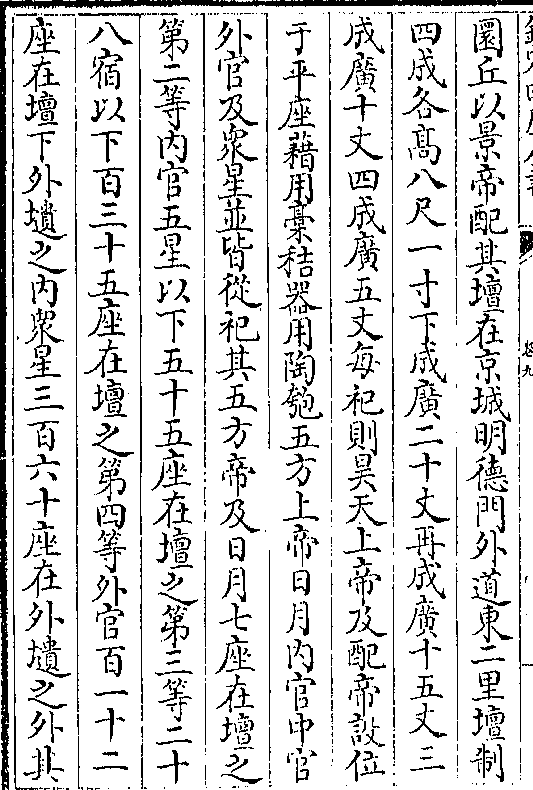 圜丘以景帝配其壇在京城明德門外道東二里壇制
四成各髙八尺一寸下成廣二十丈再成廣十五丈三
成廣十丈四成廣五丈每祀則昊天上帝及配帝設位
于平座藉用藁秸器用陶匏五方上帝日月内官中官
外官及衆星並皆從祀其五方帝及日月七座在壇之
第二等内官五星以下五十五座在壇之第三等二十
八宿以下百三十五座在壇之第四等外官百一十二
座在壇下外壝之内衆星三百六十座在外壝之外其